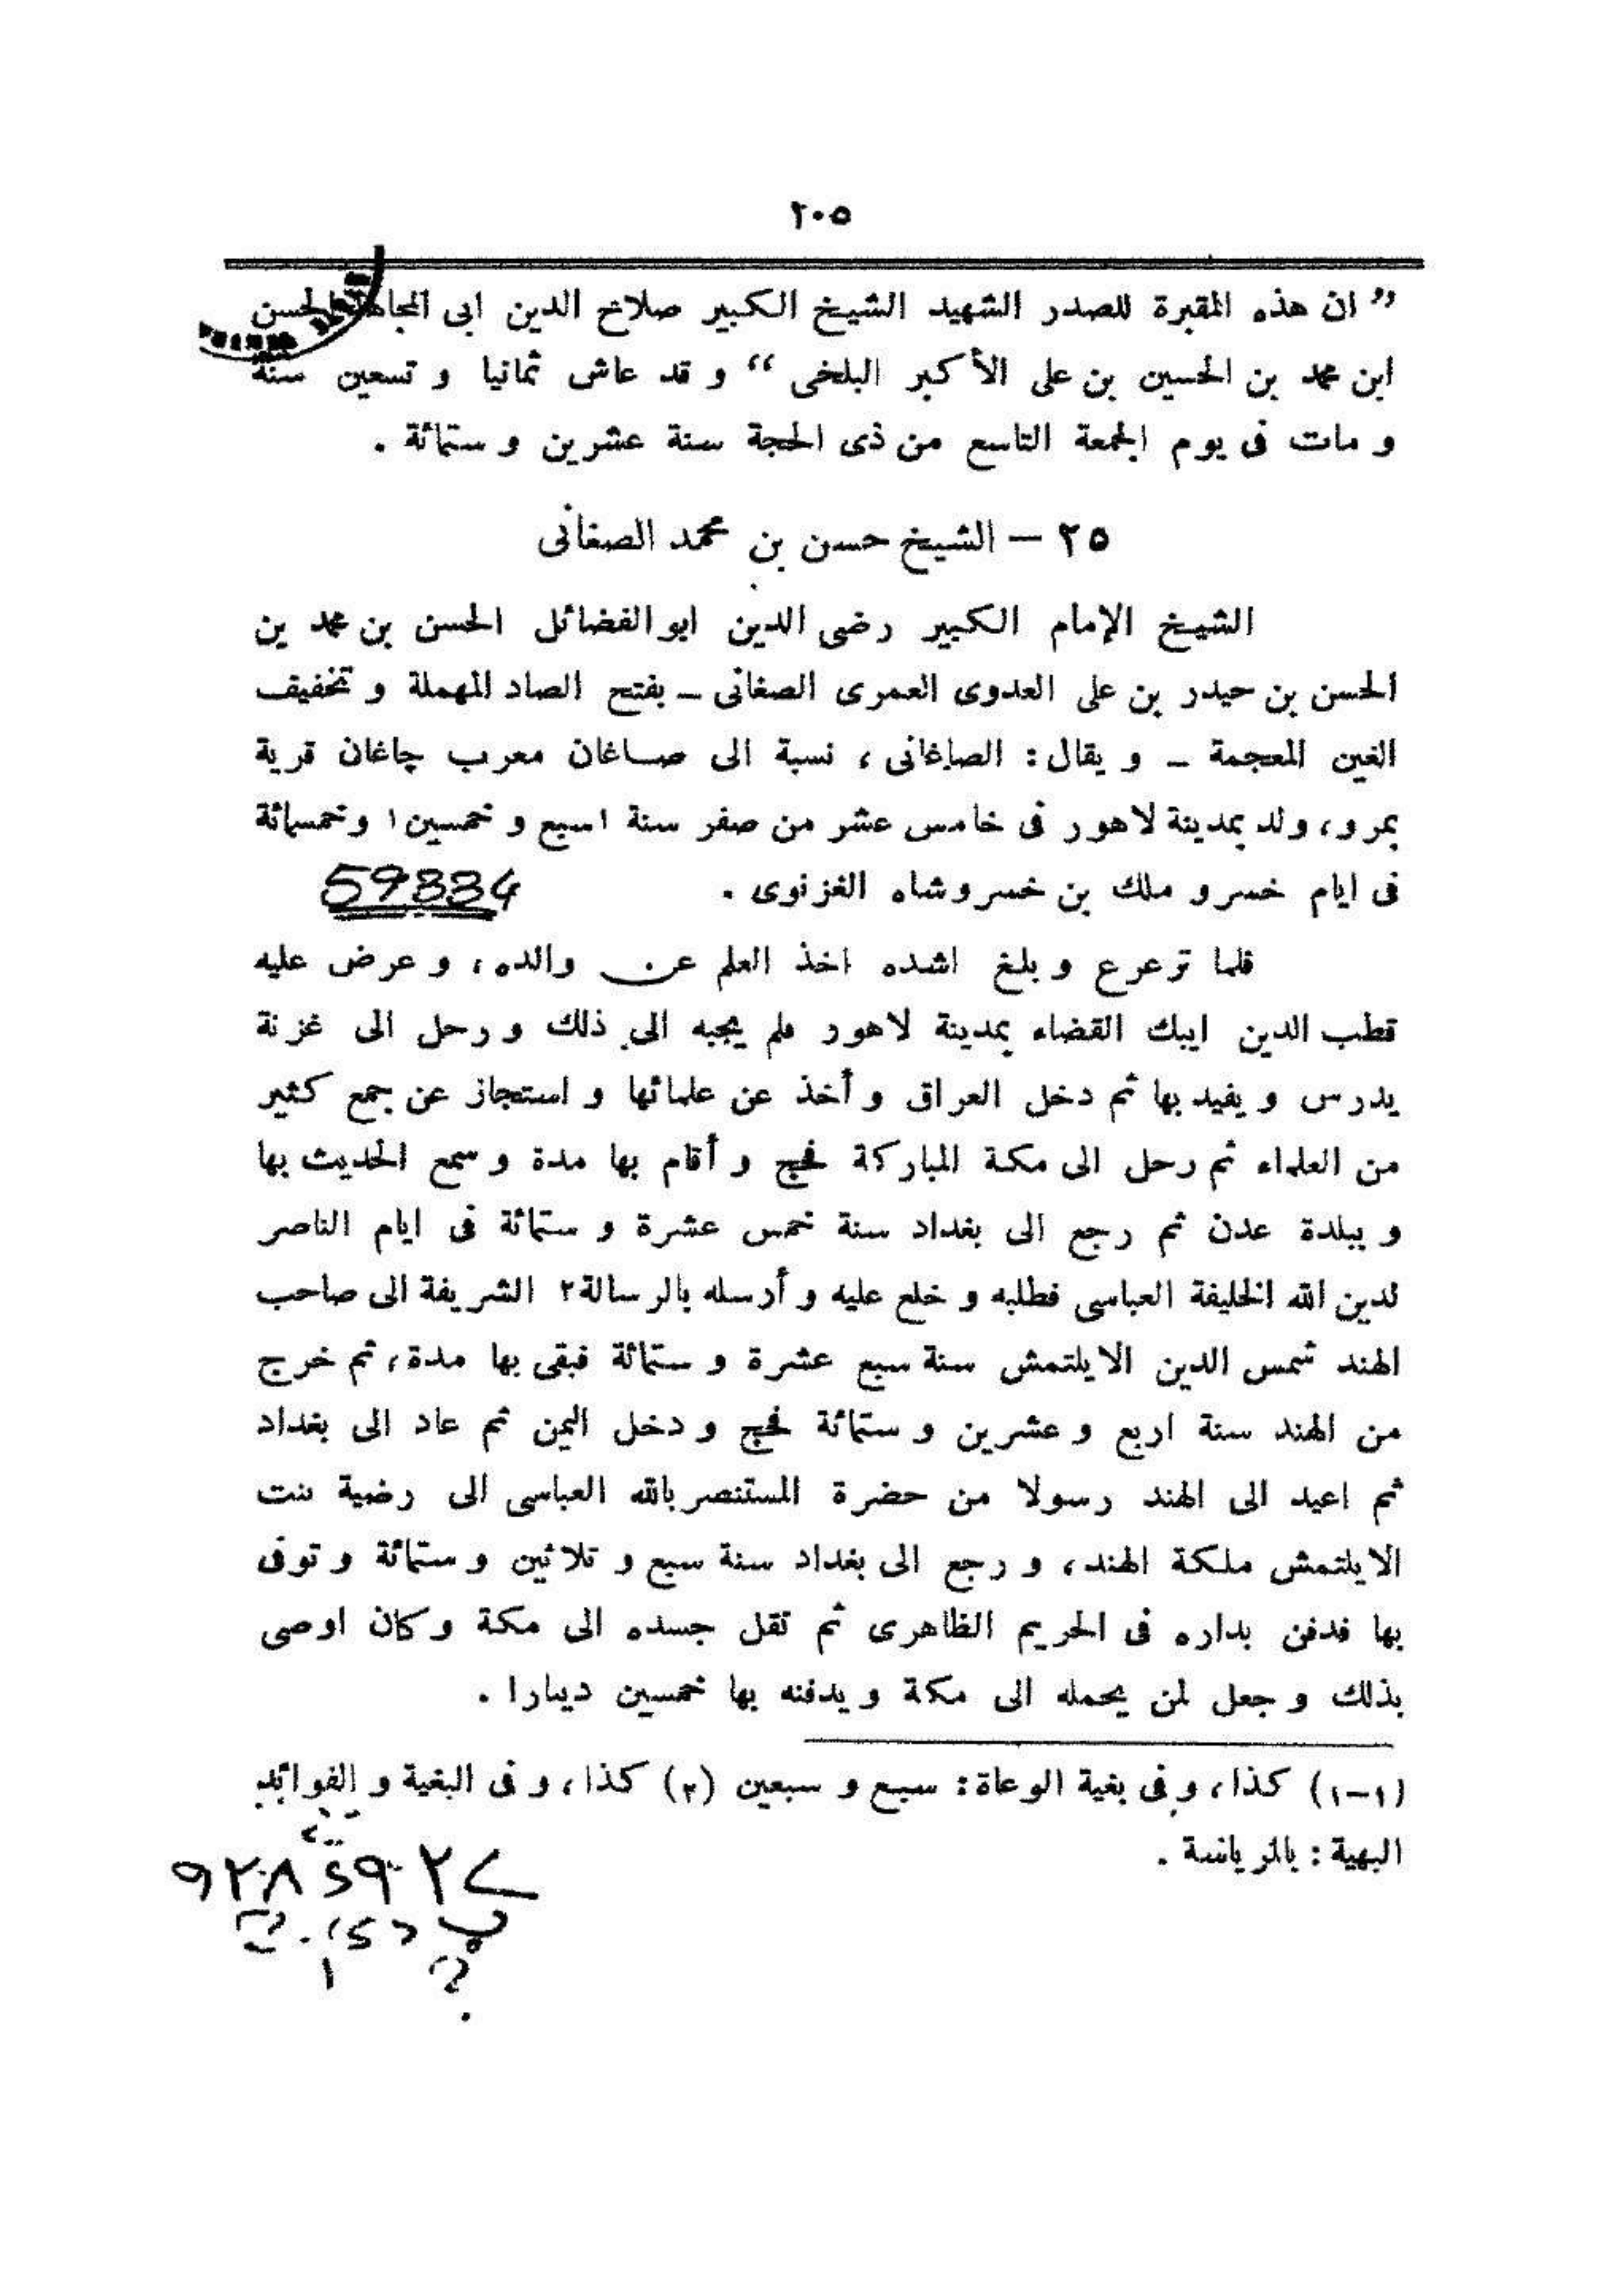 ٢٠٥
” ان هذه المقبرة للصدر الشهيد الشيخ الكبير صلاح الدين ابى المجاهد الحسن
ابن محمد بن الحسين بن على الأكبر البلخى “ و قد عاش ثمانيا و تسعين سنة
و مات فى يوم الجمعة التاسع من ذى الحجة سنة عشرين و ستمائة .
٢٥ – الشيخ حسن بن محمد الصغانى
الشيخ الإمام الكبير رضى الدين ابو الفضائل الحسن بن محمد بن
الحسن بن حيدر بن على العدوى العمرى الصغانى – بفتح الصاد المهملة و تخفيف
الغين المعجمة – و يقال : الصاغانى ، نسبة الى صاغان معرب چاغان قرية
بمرو، ولد بمدينة لاهور فى خامس عشر من صفر سنة ١سبع و خمسين١ و خمسمائة
فى ايام خسرو ملك بن خسرو شاه الغزنوى .
59834
فلما ترعرع و بلغ اشده اخذ العلم عن والده، و عرض عليه
قطب الدين ايبك القضاء بمدينة لاهور فلم يجبه الى ذلك و رحل الى غزنة
يدرس و يفيد بها ثم دخل العراق و أخذ عن علمائها و استجاز عن جمع كثير
من العلماء ثم رحل الى مكة المباركة فحج و أقام بها مدة و سمع الحديث بها
و ببلدة عدن ثم رجع الى بغداد سنة خمس عشرة و ستمائة فى ايام الناصر
لدين الله الخليفة العباسى فطلبه و خلع عليه و أرسله بالرسالة٢ الشريفة الى صاحب
الهند شمس الدين الايلتمش سنة سبع عشرة و ستمائة فبقى بها مدة، ثم خرج
من الهند سنة اربع و عشرين و ستمائة فحج و دخل اليمن ثم عاد الى بغداد
ثم اعيد الى الهند رسولا من حضرة المستنصر بالله العباسى الى رضية بنت
الايلتمش ملكة الهند، و رجع الى بغداد سنة سبع و ثلاثين و ستمائة و توفى
بها فدفن بداره فى الحريم الظاهرى ثم نقل جسده الى مكة و كان اوصى
بذلك و جعل لمن يحمله الى مكة و يدفنه بها خمسين دينارا .
(١-١) كذا، و فى بغية الوعاة : سبع و سبعين (٢) كذا، و فى البغية و الفوائد
البهية : بالرياسة .